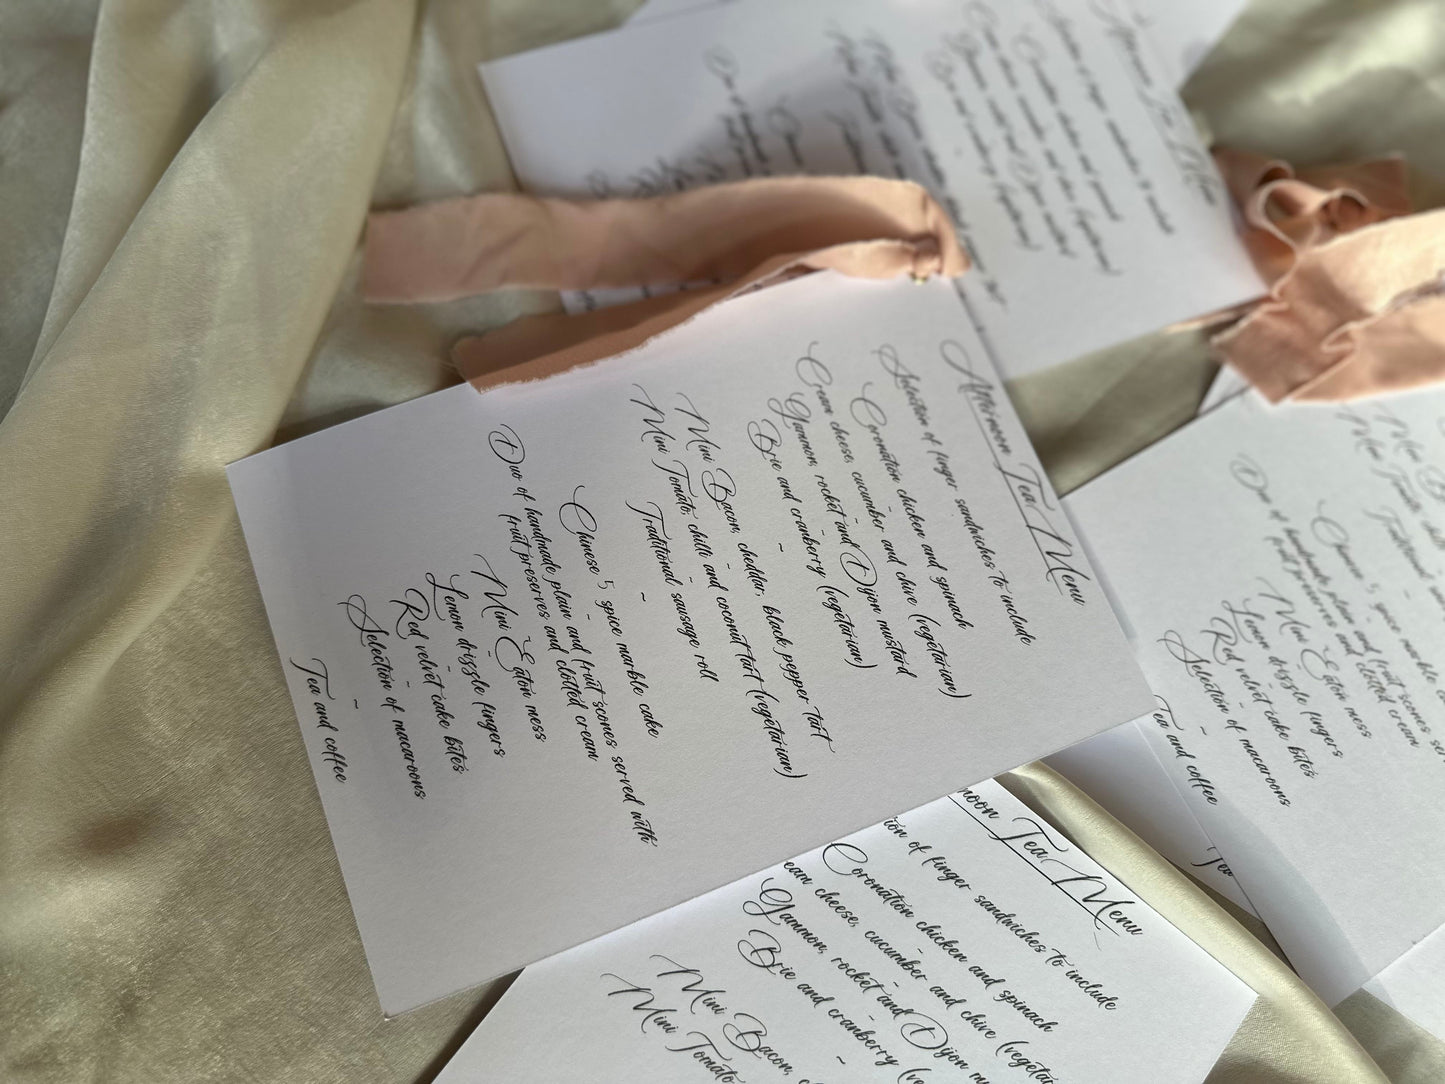 Afternoon Tea Menu
Selection of finger sandwiches to include
Coronation chicken and spinach
Cream cheese, cucumber and chive (vegetarian)
Gammon, rocket and Dijon mustard
Brie and cranberry (vegetarian)
~
Mini Bacon, cheddar, black pepper tart
Mini Tomato, chilli and coconut tart (vegetarian)
Traditional sausage roll
~
Chinese 5 spice marble cake
Duo of handmade plain and fruit scones served with
fruit preserves and clotted cream
Mini Eaton mess
Lemon drizzle fingers
Red velvet cake bites
Selection of macaroons
~
Tea and coffee
noon Tea Menu
ion of finger sandwiches to include
Coronation chicken and spinach
eam cheese, cucumber and chive (vegetar
Gammon, rocket and Dijon mu
Brie and cranberry (ve
~
Mini Bacon, c
Mini Tomato
Chinese 5 spice marble ca
Duo of handmade plain and fruit scones se
fruit preserves and clotted cream
Mini Eaton mess
Lemon drizzle fingers
Red velvet cake bites
Selection of macaroons
~
Tea and coffee
Tea